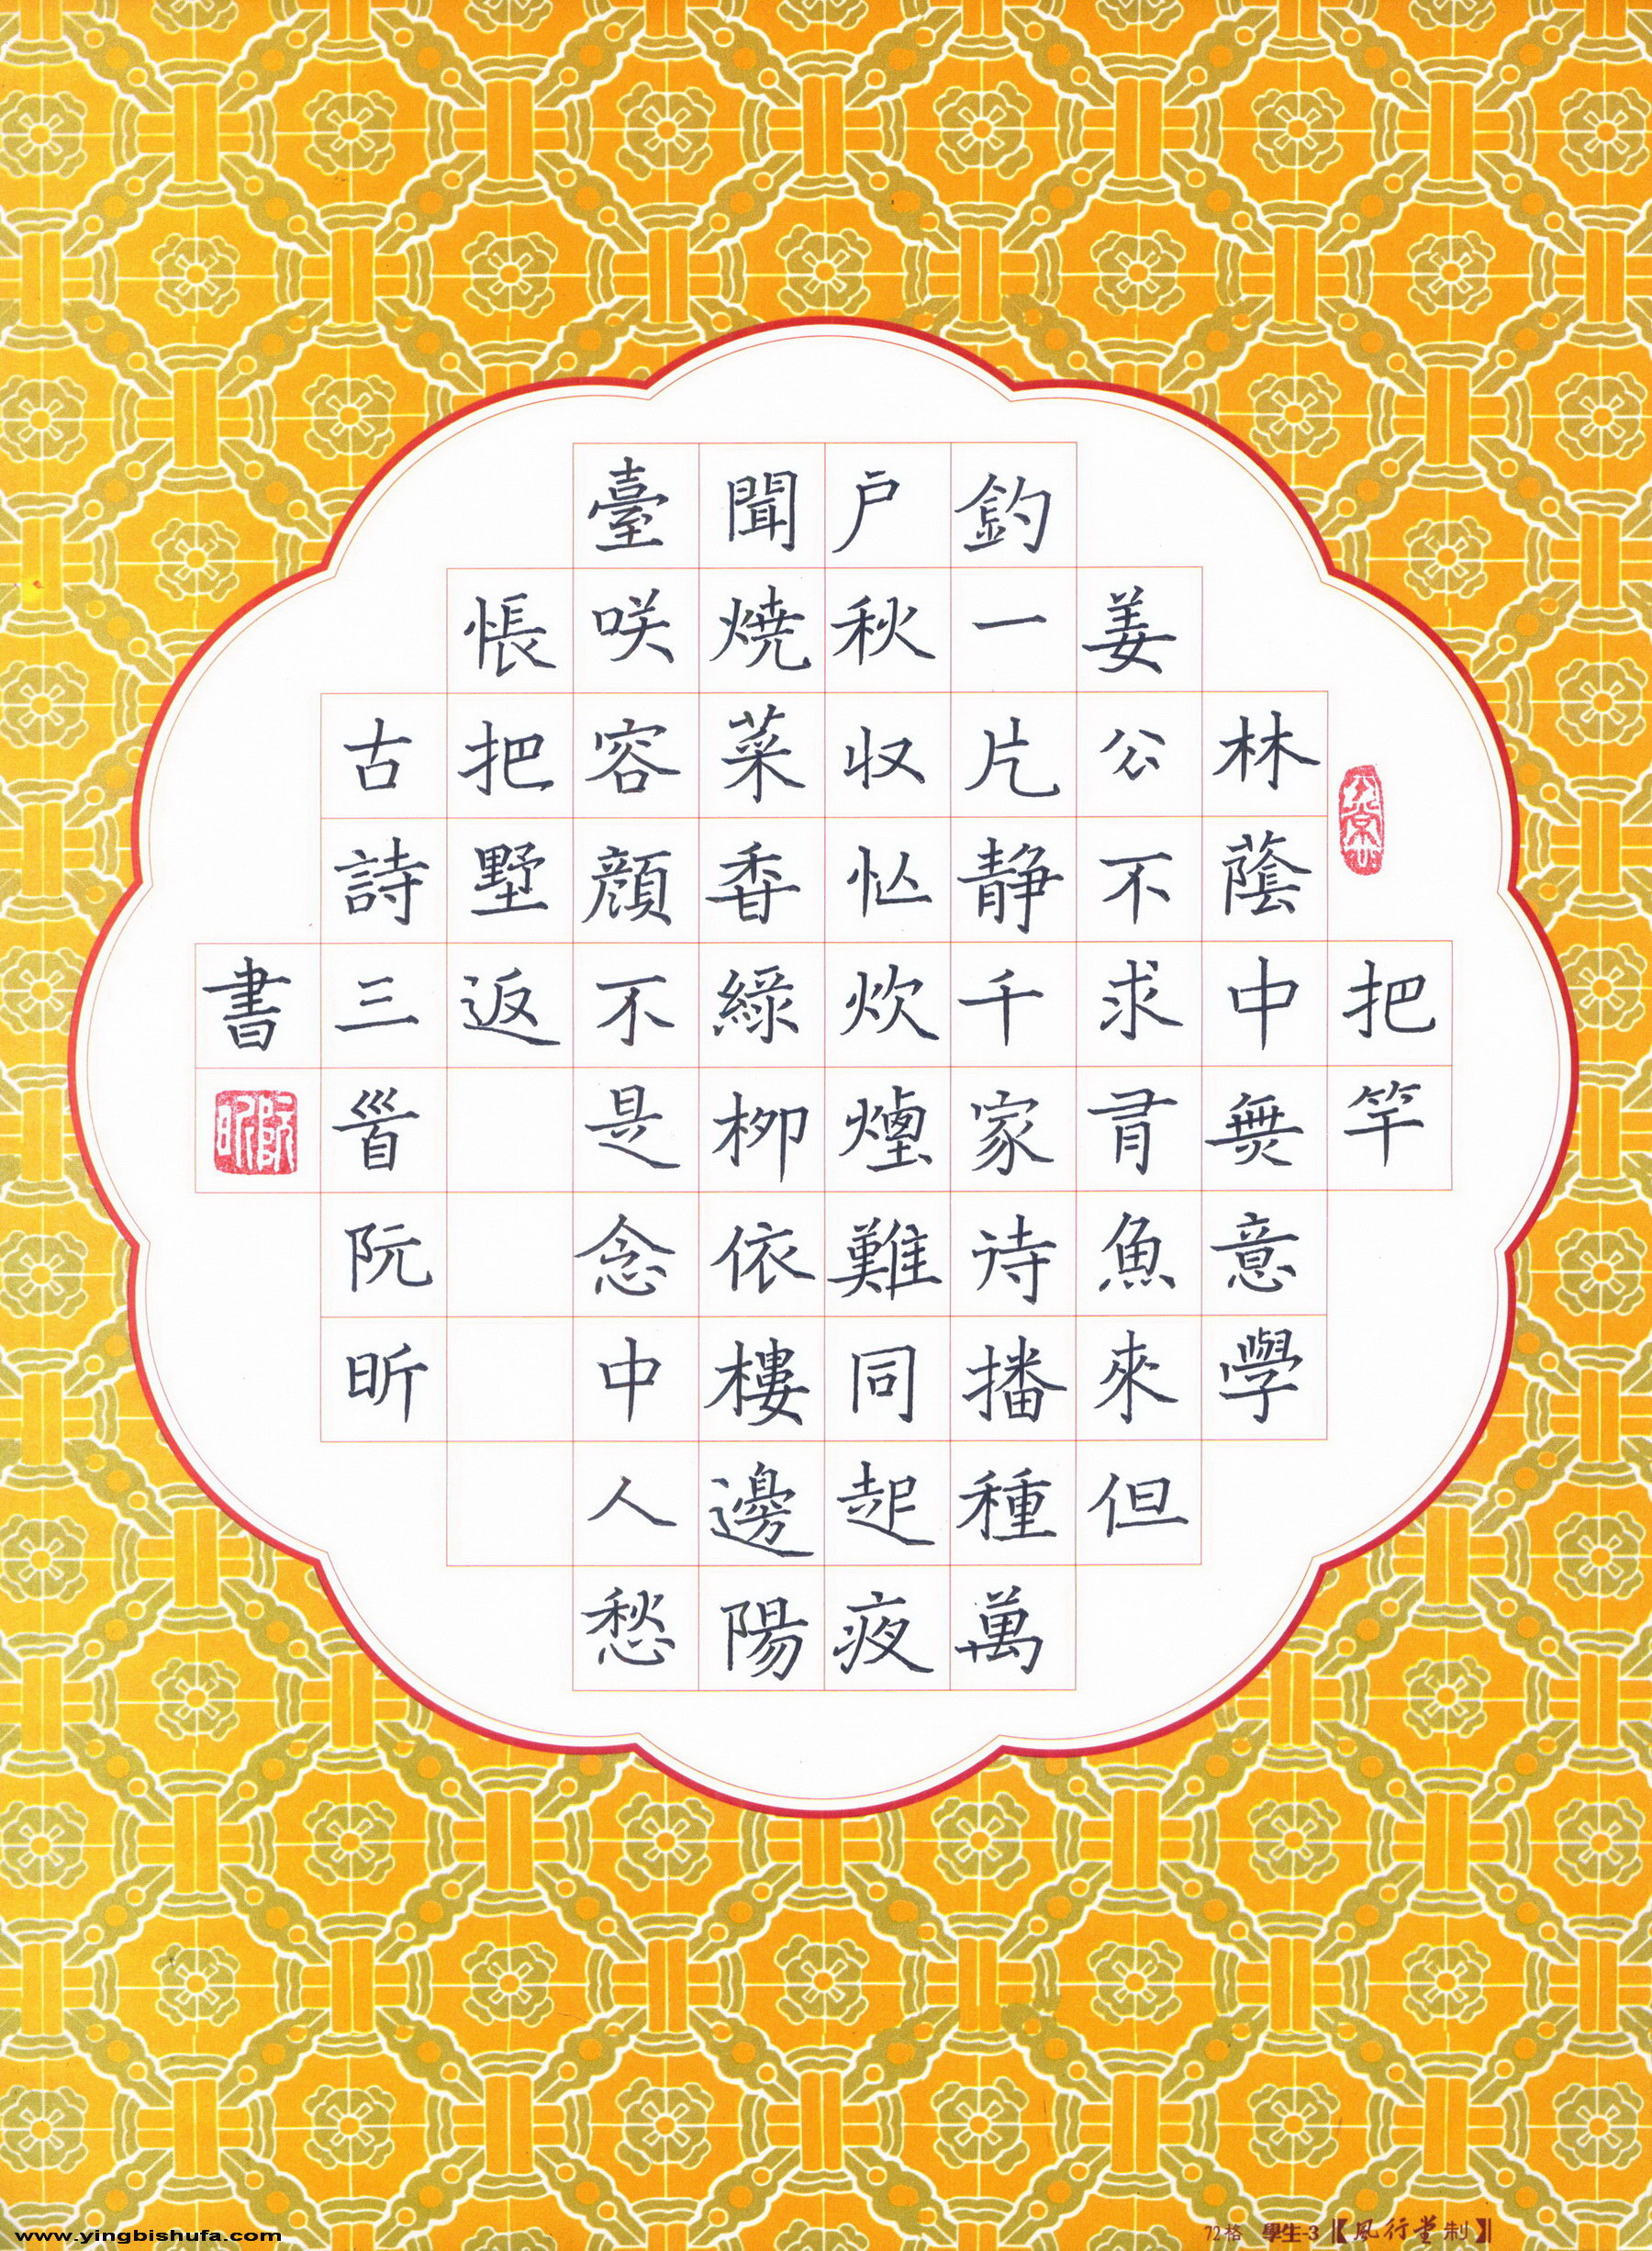 把竿
林蔭中無意學
姜公不求肎魚來但
釣一片静千家待播種萬
户秋収忙炊煙難同起夜
聞焼菜香綠柳依樓邊陽
臺咲容顔不是念中人愁
悵把墅返
古詩三首阮昕
書
阮昕
www.yingbishufa.com
72格 學生-3【風行堂制】